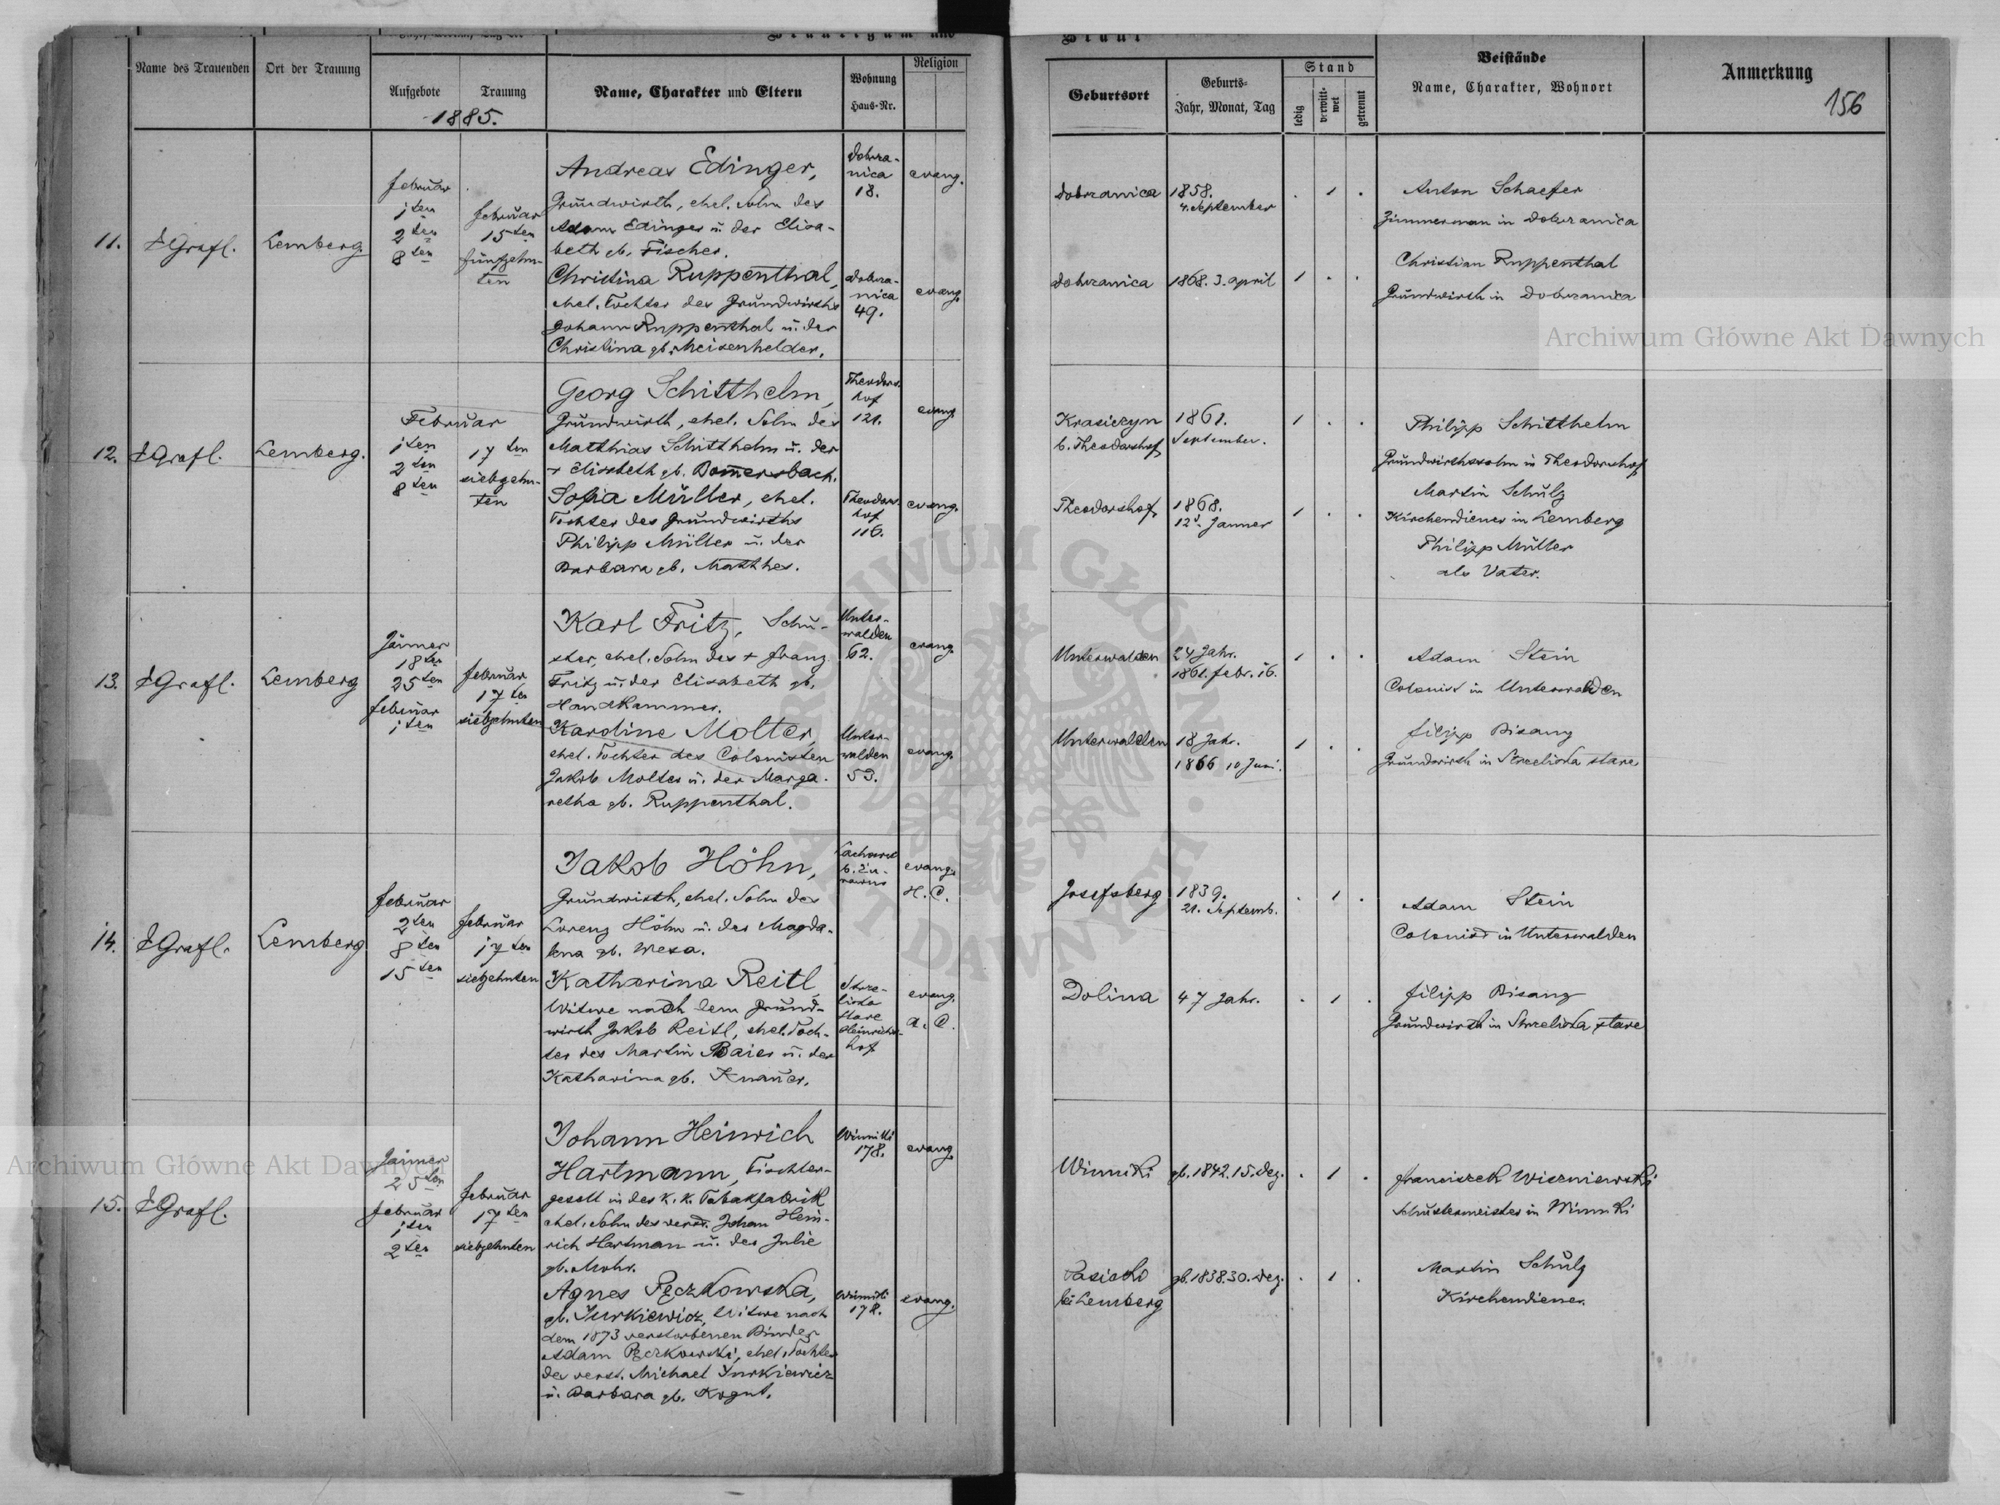 Bräutigam und
Braut
Name des Trauenden
Ort der Trauung
Aufgebote
Trauung
1885.
Name, Charakter und Eltern
Wohnung
Haus-Nr.
Religion
Geburtsort
Geburts-
Jahr, Monat, Tag
Stand
ledig
verwitt-
wet
getrennt
Beistände
Name, Charakter, Wohnort
Anmerkung
156
11.
Grafl.
Lemberg.
Februar
1ten
2ten
8ten
Februar
15ten
fünfzehn-
ten
Andreas Edinger,
Grundwirth, ehel. Sohn des
Adam Edinger u. der Elisa-
beth gb. Fischer.
Dobrza-
nica
18.
evang.
Dobrzanica
1858.
4. September
Christina Ruppenthal,
ehel. Tochter des Grundwirths
Johann Ruppenthal u. der
Christina gb. Meisenhelder.
Dobrza-
nica
49.
evang.
Dobrzanica
1868. 3. April
Anton Schaefer
Zimmerman in Dobrzanica
Christian Ruppenthal
Grundwirth in Dobrzanica
12.
Grafl.
Lemberg.
Februar
1ten
2ten
8ten
17ten
siebzehn-
ten
Georg Schitthelm,
Grundwirth, ehel. Sohn des
Matthias Schitthelm u. der
+ Elisabeth gb. Bommersbach.
Theodors-
hof
121.
evang.
Krasiczyn
b. Theodorshof
1861.
September.
Sofia Müller, ehel.
Tochter des Grundwirths
Philipp Müller u. der
Barbara gb. Matthes.
Theodors-
hof
116.
evang.
Theodorshof
1868.
12. Janner
Philipp Schitthelm
Grundwirthssohn in Theodorshof
Martin Schulz
Kirchendiener in Lemberg
Philipp Müller
als Vater.
13.
Grafl.
Lemberg
Jänner
18ten
25ten
Februar
1ten
Februar
17ten
siebzehnten
Karl Fritz, Schu-
ster, ehel. Sohn des + Franz
Fritz u. der Elisabeth gb.
Handkammer.
Unter-
walden
62.
evang.
Unterwalden
24 Jahr.
1861. Febr. 16.
Karoline Molter,
ehel. Tochter des Colonisten
Jakob Molter u. der Marga-
retha gb. Ruppenthal.
Unter-
walden
53.
evang.
Unterwalden
18 Jahr.
1866 10 Juni.
Adam Stein
Colonist in Unterwalden
Filipp Bisanz
Grundwirth in Strzeliska stare
14.
Grafl.
Lemberg
Februar
2ten
8ten
15ten
Februar
17ten
siebzehnten
Jakob Höhn,
Grundwirth, ehel. Sohn des
Lorenz Höhn u. der Magda-
lena gb. Wexa.
evang.
H. C.
Josefsberg
1839.
21. Septemb.
Katharina Reitl,
Witwe nach dem Grund-
wirth Jakob Reitl, ehel. Toch-
ter des Martin Baier u. der
Katharina gb. Knauer.
Strze-
liska
stare
Heinrichs-
hof
evang.
A. C.
Dolina
47 Jahr.
Adam Stein
Colonist in Unterwalden
Filipp Bisanz
Grundwirth in Strzeliska stare
15.
Grafl.
Jänner
25ten
Februar
1ten
2ten
Februar
17ten
siebzehnten
Johann Heinrich
Hartmann, Tischler-
gesell in der k. k. Tabakfabrik
ehel. Sohn des verst. Johan Hein-
rich Hartman u. der Julie
gb. Mohr.
Winniki
178.
evang.
Winniki
gb. 1842. 15. Dez.
Agnes Pęczkowska,
gb. Jurkiewicz, Witwe nach
dem 1873 verstorbenen Binder
Adam Pęczkowski, ehel. Tochter
des verst. Michael Jurkiewicz
u. Barbara gb. Kogut.
Winniki
178.
evang.
Pasieki
bei Lemberg
gb. 1838. 30. Dez.
Franciszek Wiszniewski
Schustermeister in Winniki
Martin Schulz
Kirchendiener.
Archiwum Główne Akt Dawnych
Archiwum Główne Akt Dawnych
ARCHIWUM GŁÓWNE AKT DAWNYCH